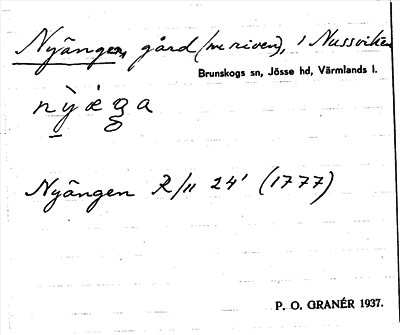 Nyängen, gård (nu riven), i Nussviken
Brunskogs sn, Jösse hd, Värmlands l.
Nyängen R/11 24' (1777)
P. O. GRANÉR 1937.